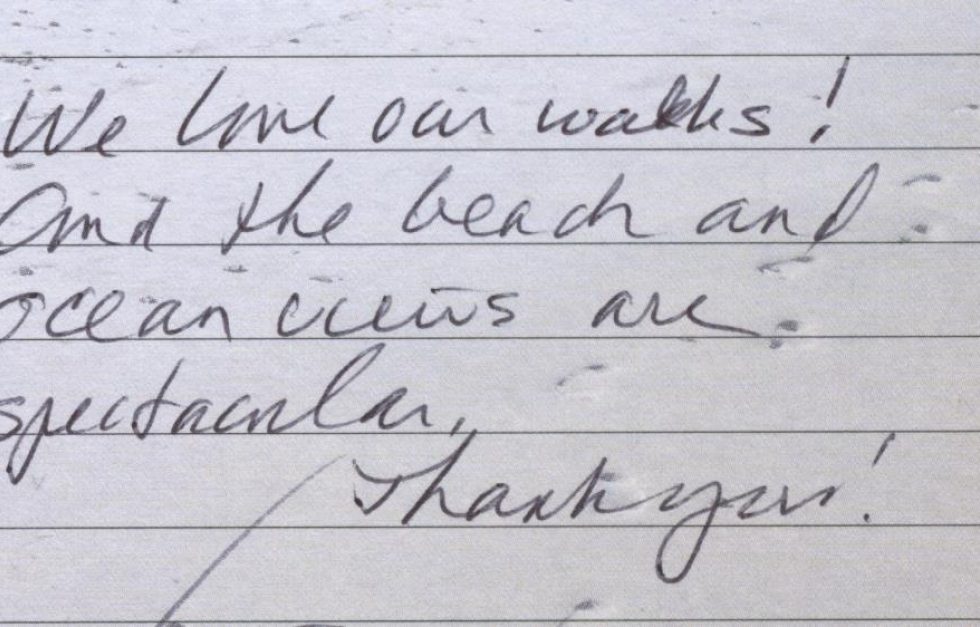 We love our walks!
And the beach and
ocean views are
spectacular.
Thank you!